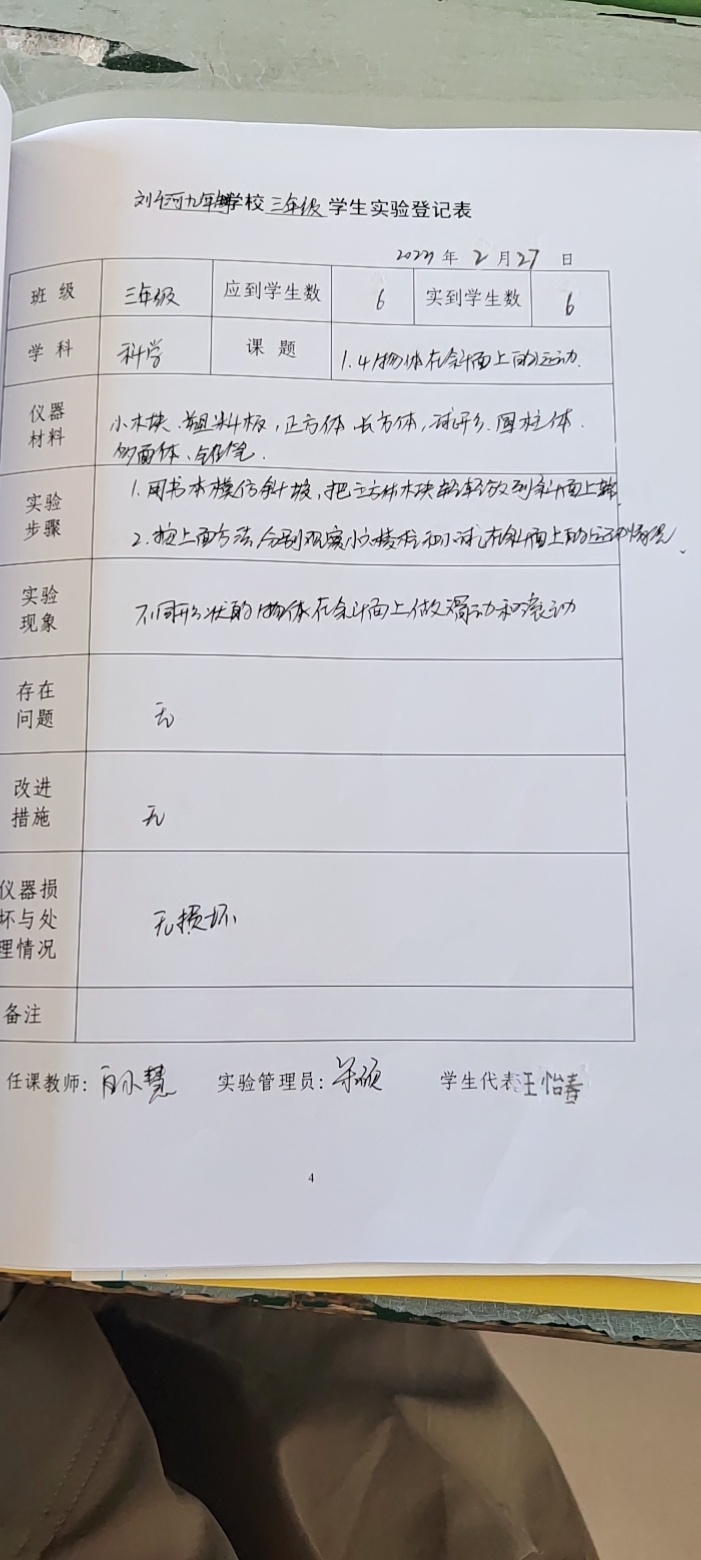 刘河九年制学校三年级学生实验登记表
年 2 月 27 日
班 级 三年级 应到学生数 6 实到学生数 6
学 科 科学 课 题 1.4物体在斜面上的运动.
仪器
材料
小木块.塑料板,正方体 长方体,球形.圆柱体.
多面体、铅笔.
实验
步骤
1.用书本模仿斜坡,把立方体木块轻轻放到斜面上端
2.按上面方法,分别观察小六棱柱和小球在斜面上的运动情况.
实验
现象
不同形状的物体在斜面上做滑动和滚动
存在
问题
无
改进
措施
无
仪器损
坏与处
理情况
无损坏
备注
任课教师: 实验管理员: 学生代表 王怡春
4